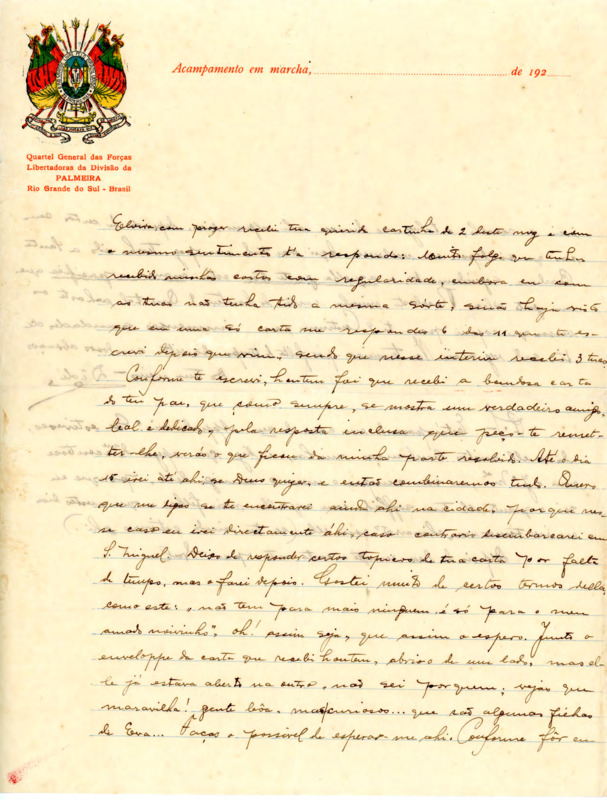 Acampamento em marcha, de 192
Quartel General das Forças
Libertadoras da Divisão da
PALMEIRA
Rio Grande do Sul - Brasil
Elvira, com prazer recebi tua querida cartinha de 2 deste mez e com
o mesmo sentimento t'a respondo: Muito folgo que tenhas
recebido minhas cartas com regularidade, embora eu com
as tuas não tenha tido a mesma sorte, sinão haja visto
que em uma só carta me respondes 6 das 11 que te es-
crevi depois que vim, sendo que nesse interim recebi 3 tuas.
Conforme te escrevi, hontem foi que recebi a bondosa carta
do teu pae, que, como sempre, se mostra um verdadeiro amigo,
leal e dedicado, pela resposta inclusa, que peço-te remet-
ter-lhe, verão o que ficou da minha parte resolvido. Até o dia
15 irei até ahi se Deus quizer, e então combinaremos tudo. Quero
que me digas se te encontrarei ainda ahi na cidade, porque nes-
se caso eu irei directamente ahi, caso contrario desembarcarei em
S. Miguel. Deixo de responder certos topicos de tua carta por falta
de tempo, mas o farei depois. Gostei muito de certos termos della,
como este: "não tem para mais ninguem, é só para o meu
amado noivinho", oh! assim seja, que assim o espero. Junto o
enveloppe da carta que recebi hontem, abri-o de um lado, mas el-
le já estava aberto na outro, não sei por quem; vejas que
maravilha! gente bôa, mas curiosos... que são algumas fichas
de Eva... Faças o possivel de esperar-me ahi. Conforme fôr eu